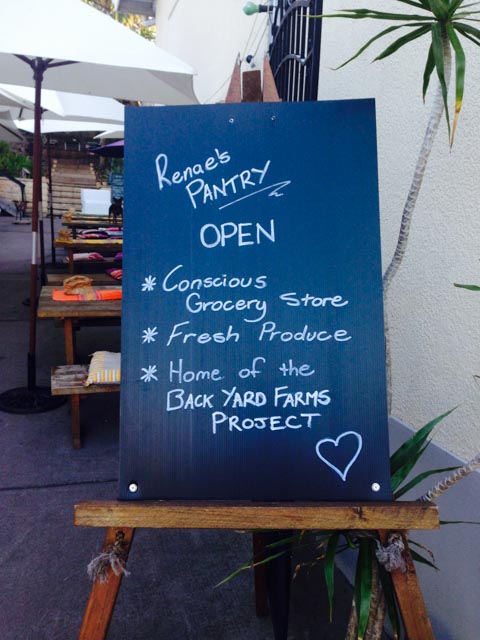 Renae's
PANTRY
OPEN
* Conscious
Grocery Store
* Fresh Produce
* Home of the
BACK YARD FARMS
PROJECT